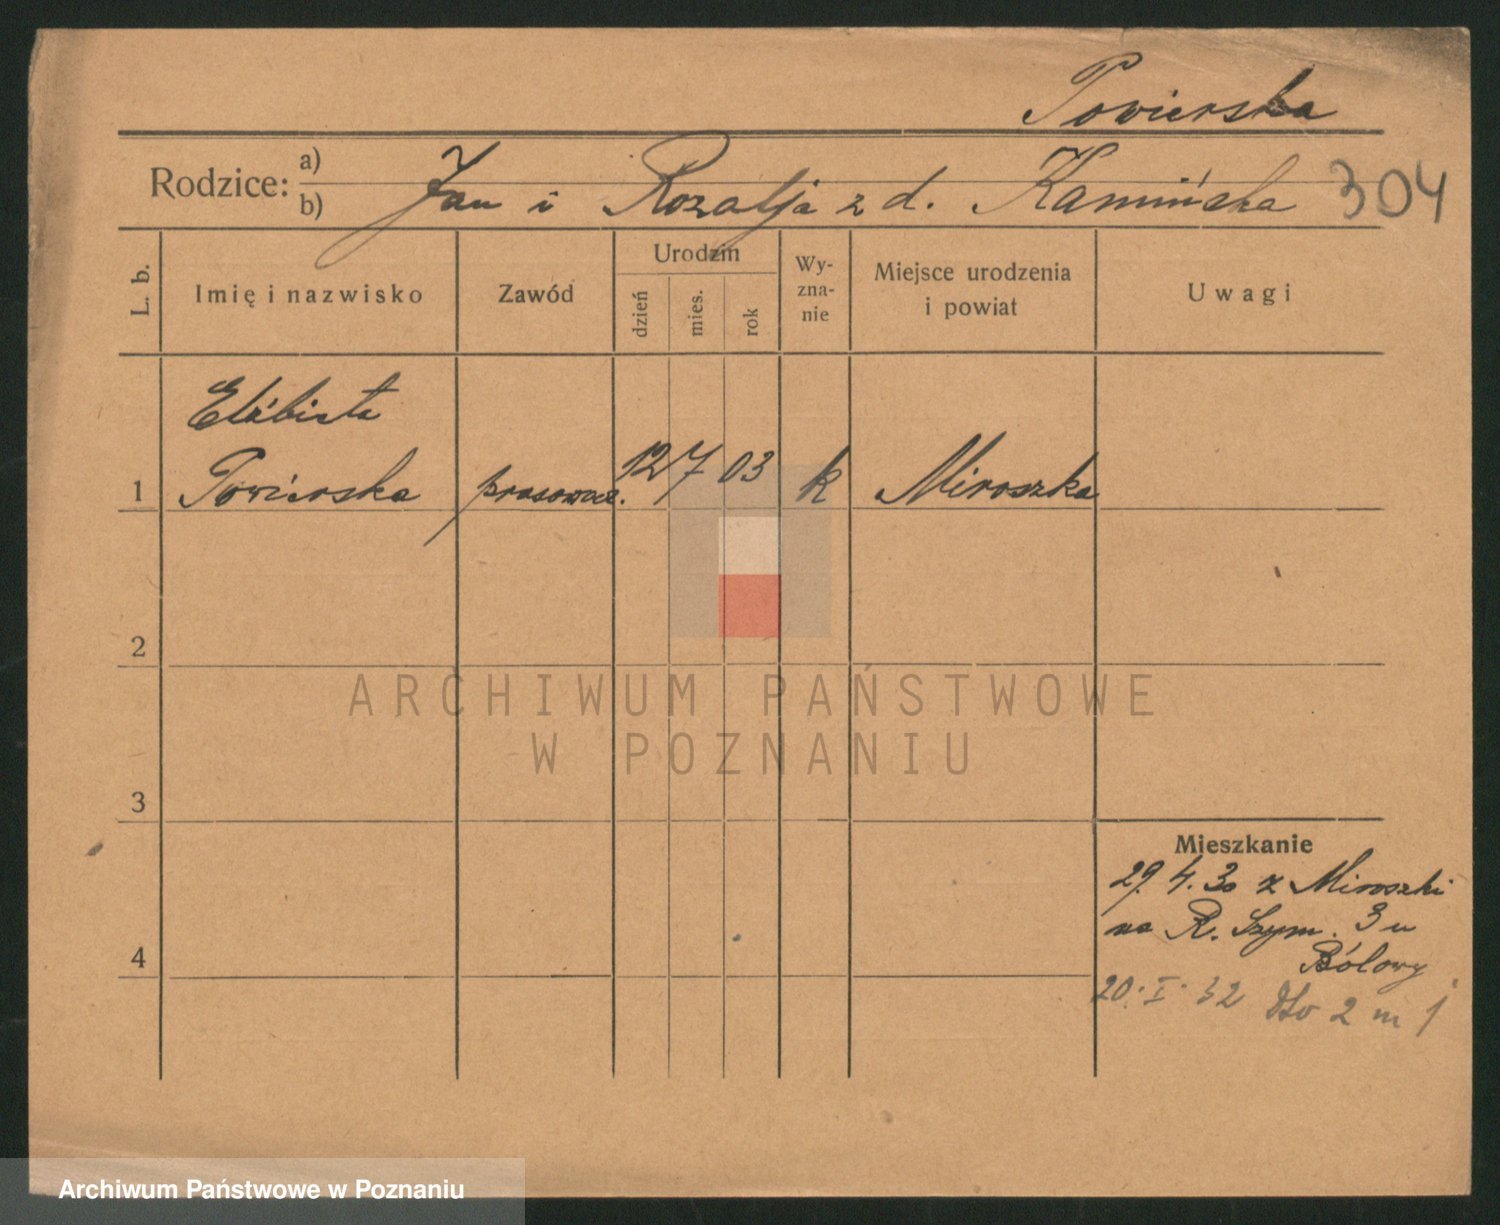 Powierska
Rodzice: a) b) Jan i Rozalja z d. Kamińska 304
L. b.
Imię i nazwisko
Zawód
Urodzin
dzień
mies.
rok
Wy-
zna-
nie
Miejsce urodzenia
i powiat
Uwagi
Elżbieta
1 Powierska prasowacz. 12 7 03 k Miroszka
2
3
4
ARCHIWUM PAŃSTWOWE
W POZNANIU
Mieszkanie
29. 4. 30 z Miroszki
na R. Szym. 3 u
20. I. 32 dto 2 m 1
Archiwum Państwowe w Poznaniu